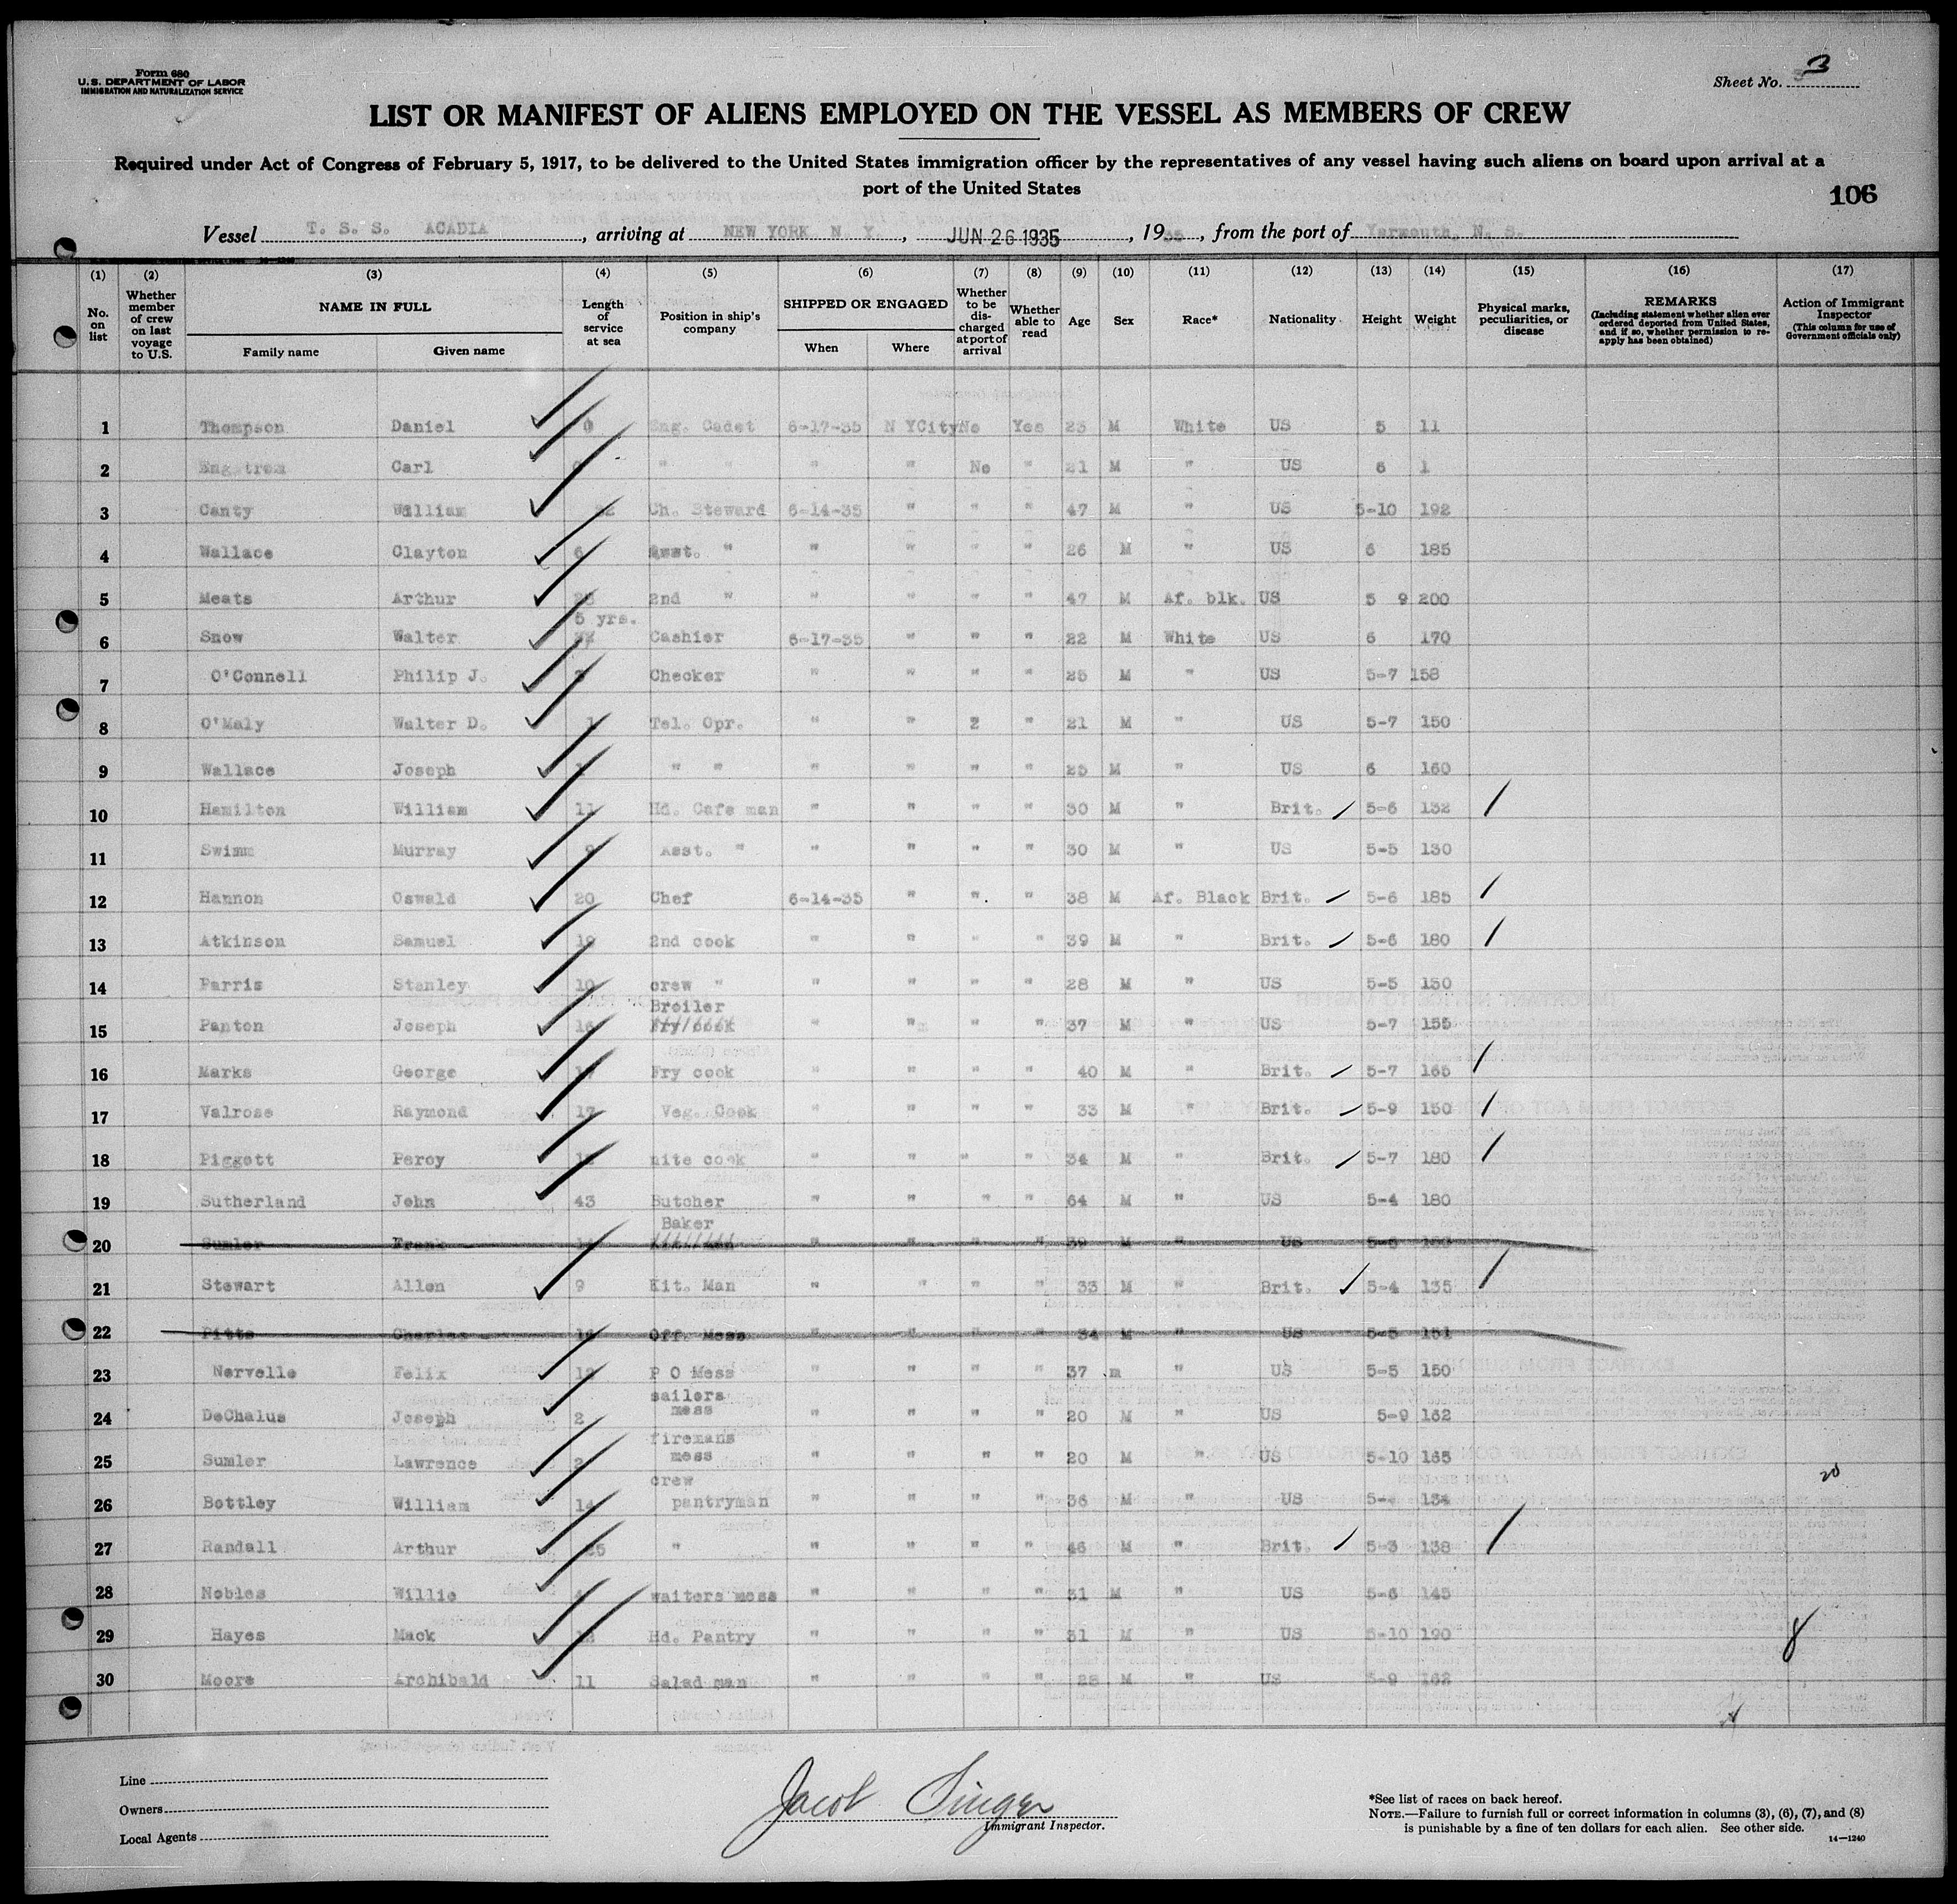 Form 680
U. S. DEPARTMENT OF LABOR
IMMIGRATION AND NATURALIZATION SERVICE
Sheet No. 3
LIST OR MANIFEST OF ALIENS EMPLOYED ON THE VESSEL AS MEMBERS OF CREW
Required under Act of Congress of February 5, 1917, to be delivered to the United States immigration officer by the representatives of any vessel having such aliens on board upon arrival at a
port of the United States
106
Vessel T. S. S. ACADIA, arriving at NEW YORK N. Y., JUN 26 1935, 1935, from the port of Yarmouth, N. S.
(1) (2) (3) (4) (5) (6) (7) (8) (9) (10) (11) (12) (13) (14) (15) (16) (17)
No. on list
Whether member of crew on last voyage to U.S.
NAME IN FULL
Family name
Given name
Length of service at sea
Position in ship's company
SHIPPED OR ENGAGED
When
Where
Whether to be discharged at port of arrival
Whether able to read
Age
Sex
Race*
Nationality
Height
Weight
Physical marks, peculiarities, or disease
REMARKS
(Including statement whether alien ever ordered deported from United States, and if so, whether permission to re-apply has been obtained)
Action of Immigrant Inspector
(This column for use of Government officials only)
1 Thompson Daniel 0 Eng. Cadet 6-17-35 N YCity No Yes 23 M White US 5 11
2 Engstrom Carl " " " " No " 21 M " US 6 1
3 Canty William Ch. Steward 6-14-35 " " " 47 M " US 5-10 192
4 Wallace Clayton 6 Asst. " " " " " 26 M " US 6 185
5 Meats Arthur 2nd " " " " " 47 M Af. blk. US 5 9 200
6 Snow Walter 5 yrs. Cashier 6-17-35 " " " 22 M White US 6 170
7 O'Connell Philip J. Checker " " " " 25 M " US 5-7 158
8 O'Maly Walter D. 1 Tel. Opr. " " 2 " 21 M " US 5-7 150
9 Wallace Joseph " " " " " " 25 M " US 6 160
10 Hamilton William 11 Hd. Cafe man " " " " 30 M " Brit. 5-6 132
11 Swimm Murray 9 Asst. " " " " " 30 M " US 5-5 130
12 Hannon Oswald 20 Chef 6-14-35 " " " 38 M Af. Black Brit. 5-6 185
13 Atkinson Samuel 19 2nd cook " " " " 39 M " Brit. 5-6 180
14 Parris Stanley 10 crew " " " " " 28 M " US 5-5 150
15 Panton Joseph 16 Broiler Fry cook " " " " 37 M " US 5-7 155
16 Marks George Fry cook " " " " 40 M " Brit. 5-7 165
17 Valrose Raymond 17 Veg. Cook " " " " 33 M " Brit. 5-9 150
18 Piggott Percy nite cook " " " " 34 M " Brit. 5-7 180
19 Sutherland John 43 Butcher " " " " 64 M " US 5-4 180
20 Sumler Frank Baker " " " " 39 M " US 5-6
21 Stewart Allen 9 Kit. Man " " " " 33 M " Brit. 5-4 135
22 Pitts Charles Off. Mess " " " " 34 M " US 5-5 151
23 Nervelle Felix P O Mess " " " " 37 m " US 5-5 150
24 DeChalus Joseph 2 sailers mess " " " " 20 M " US 5-9 162
25 Sumler Lawrence 2 firemans mess " " " " 20 M " US 5-10 165
26 Bottley William 14 crew pantryman " " " " 36 M " US 134
27 Randall Arthur 25 " " " " " 46 M " Brit. 5-3 138
28 Nobles Willie waiters mess " " " " 31 M " US 5-6 145
29 Hayes Mack Hd. Pantry " " " " 31 M " US 5-10 190
30 Moore Archibald 11 Salad man " " " " 28 M " US 5-9 162
20
8
Line
Owners
Local Agents
Jacob Singer
Immigrant Inspector.
*See list of races on back hereof.
NOTE.—Failure to furnish full or correct information in columns (3), (6), (7), and (8)
is punishable by a fine of ten dollars for each alien. See other side.
14—1240